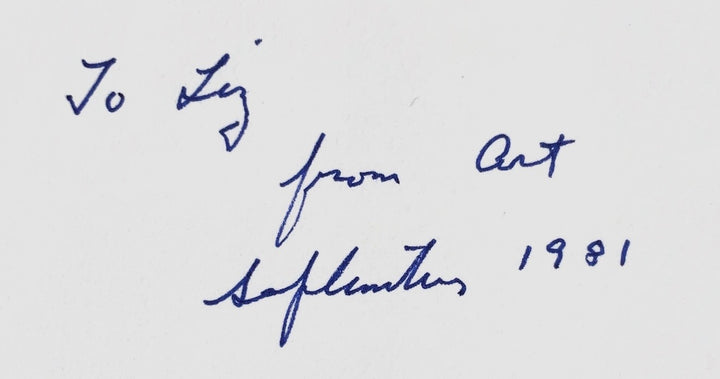 To Liz
from Art
September 1981